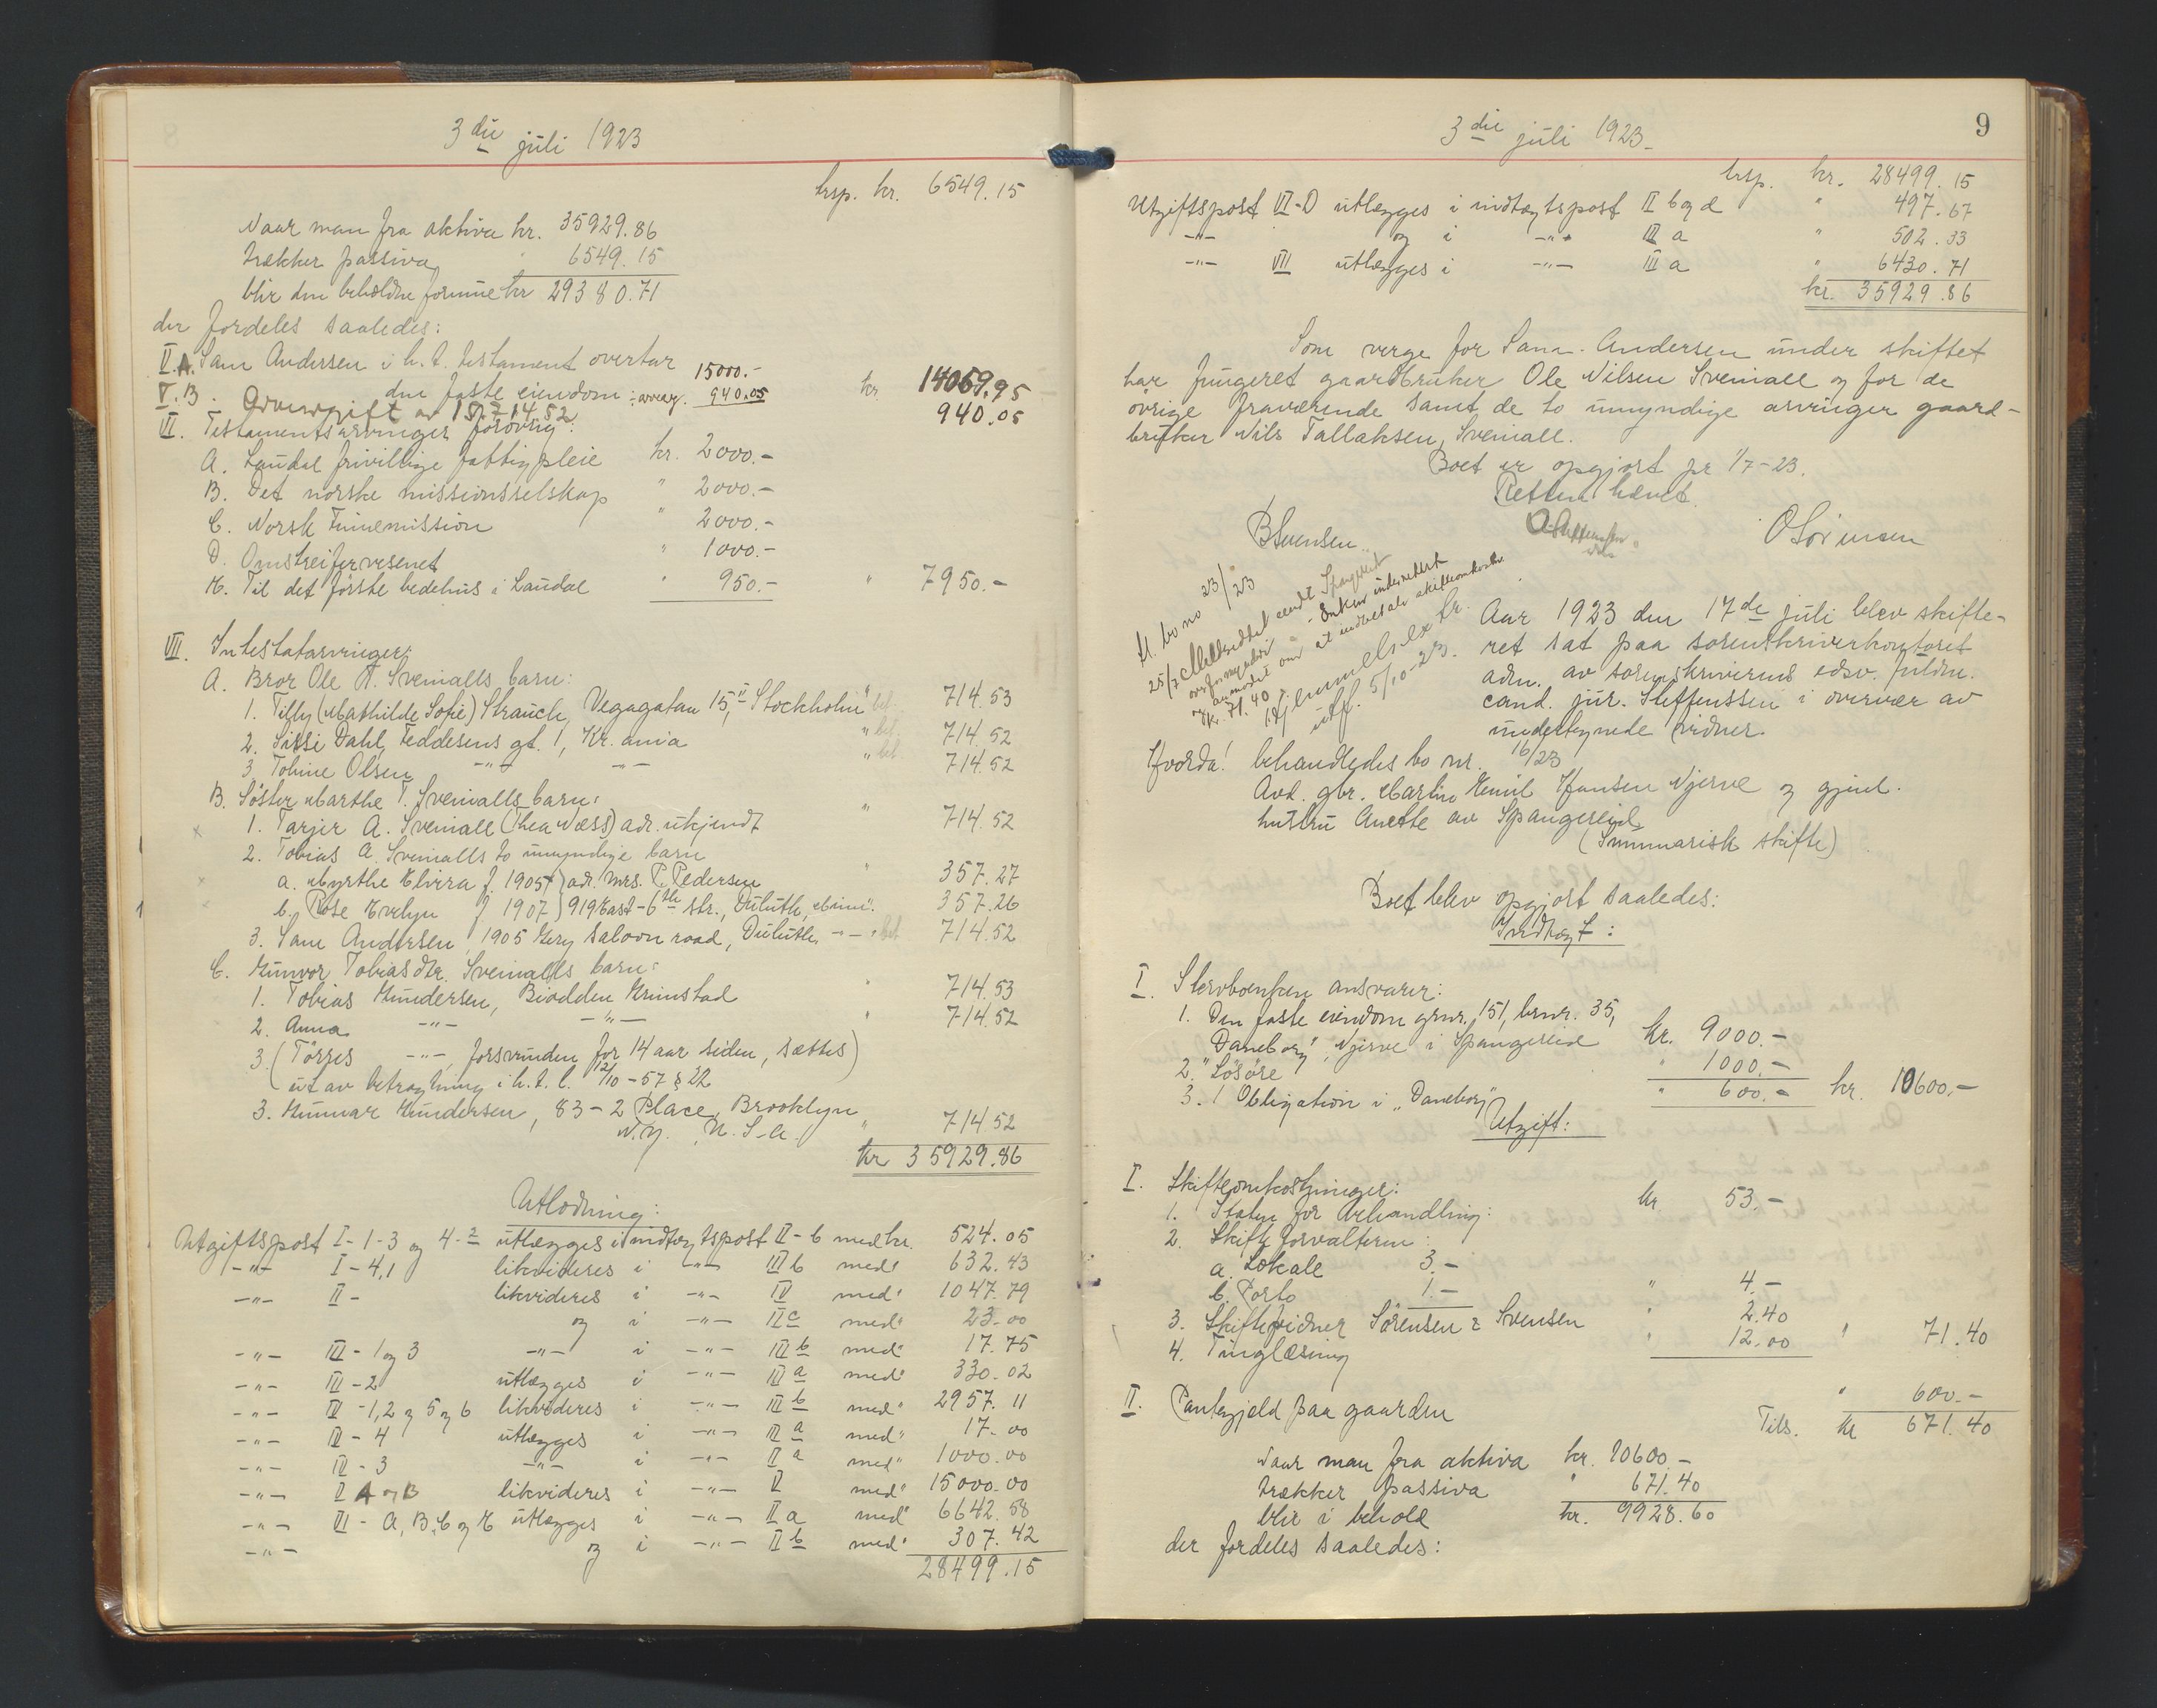 3die juli 1923
trsp. kr. 6549.15
Naar man fra aktiva kr. 35929.86
trækker passiva " 6549.15
blir den beholdne formue kr 29380.71
der fordeles saaledes:
V.A. Sam Andersen i h.t. testament overtar
den faste eiendom 15000.-
÷ arveavg. 940.05 kr 14059.95
V.B. Arveavgift av 15714.52 940.05
VI. Testamentsarvinger forøvrig:
A. Laudal frivillige fattigpleie kr. 2000.-
B. Det norske missionsselskap " 2000.-
C. Norsk Finnemission " 2000.-
D. Omstreifervesenet " 1000.-
E. Til det første bedehus i Laudal " 950.- " 7950.-
VII. Intestatarvinger:
A. Bror Ole T. Sveinalls barn:
1. Tilly (Mathilde Sofie) Strauch, Vegagatan 15, II Stockholm " bet. 714.53
2. Sissi Dahl, Feddesens gt. 1, Kr.ania " bet. 714.52
3. Tobine Olsen -"- -"- " bet. 714.52
B. Søster Marthe T. Sveinalls barn:
1. Tarjer A. Sveinall (Thea Næss) adr. ukjendt " 714.52
2. Tobias A. Sveinalls to umyndige barn
a. Myrthe Elvira f. 1905 } adr. Mrs. P. Pedersen " 357.27
b. Rose Evelyn f. 1907 } 919 East-6th str., Duluth, Minn. " 357.26
3. Sam Andersen, 1905 Gery saloon road, Duluth, -"- " bet 714.52
C. Gunvor Tobiasdtr. Sveinalls barn:
1. Tobias Gundersen, Biodden Grimstad " 714.53
2. Anna -"- -"- " 714.52
3. (Tørres -"-, forsvunden for 14 aar siden, sættes
ut av betragtning i h.t. l. 12/10-57 § 22)
3. Gunnar Gundersen, 83-2 Place, Brooklyn
N.Y., U.S.A. " 714.52
kr 35929.86
Utlodning:
Utgiftspost I-1-3 og 4-2 utlægges i indtægtspost II-b med kr. 524.05
-"- I-4,1 likvideres i -"- III b med " 632.43
-"- II- likvideres i -"- IV med " 1047.79
og i -"- III c med " 23.00
-"- III-1 og 3 -"- i -"- III b med " 17.75
-"- III-2 utlægges i -"- III a med " 330.02
-"- IV-1,2 og 5 og 6 likvideres i -"- III b med " 2957.11
-"- IV-4 utlægges i -"- II a med " 17.00
-"- IV-3 -"- i -"- II a med " 1000.00
-"- V A og B likvideres i -"- V med " 15000.00
-"- VI-A, B, C og E utlægges i -"- II a med " 6642.58
-"- og i -"- II b med " 307.42
28499.15
9
3die juli 1923.
trsp. kr. 28499.15
Utgiftspost VI-D utlægges i indtægtspost II b og d " 497.67
-"- og i -"- III a " 502.33
-"- VII utlægges i -"- III a " 6430.71
kr. 35929.86
Som verge for Sam. Andersen under skiftet
har fungeret gaardbruker Ole Nilsen Sveinall og for de
øvrige fraværende samt de to umyndige arvinger gaard-
bruker Nils Tallaksen, Sveinall.
Boet er opgjort pr 1/7-23.
Retten hævet.
B Svensen O Sørensen
H. bo no 23/23
25/7 Meldseddel sendt Spangereid
overformynderi - Enken underrettet
og anmodet om at indbetale skifteomkostn.
kr. 71.40.
Hjemmelsex. kr.
utf. 5/10-23.
Aar 1923 den 17de juli blev skifte-
ret sat paa sorenskriverkontoret
adm. av sorenskriverens edsv. fuldm.
cand. jur. Steffenssen i overvær av
undertegnede vidner.
Hvorda! behandledes bo nr. 16/23
Avd. gbr. Martin Emil Hansen Njerve og gjenl.
hustru Anette av Spangereid
(Summarisk skifte)
Boet blev opgjort saaledes:
Indtægt:
I. Stervboenken ansvarer:
1. Den faste eiendom gnr. 151, brnr. 35,
"Daneborg", Njerve i Spangereid kr. 9000.-
2. Løsøre " 1000.-
3. 1 Obligation i "Daneborg" " 600.- kr. 10600.-
Utgift:
I. Skifteomkostninger:
1. Staten for behandling: kr 53.-
2. Skifteforvalteren:
a. Lokale 3.-
b. Porto 1.- " 4.-
3. Skiftevidner Sørensen & Svensen " 2.40
4. Tinglæsning " 12.00 " 71.40
II. Pantegjeld paa gaarden " 600.-
Tils. kr 671.40
Naar man fra aktiva kr. 10600.-
trækker passiva " 671.40
blir i behold kr. 9928.60
der fordeles saaledes: